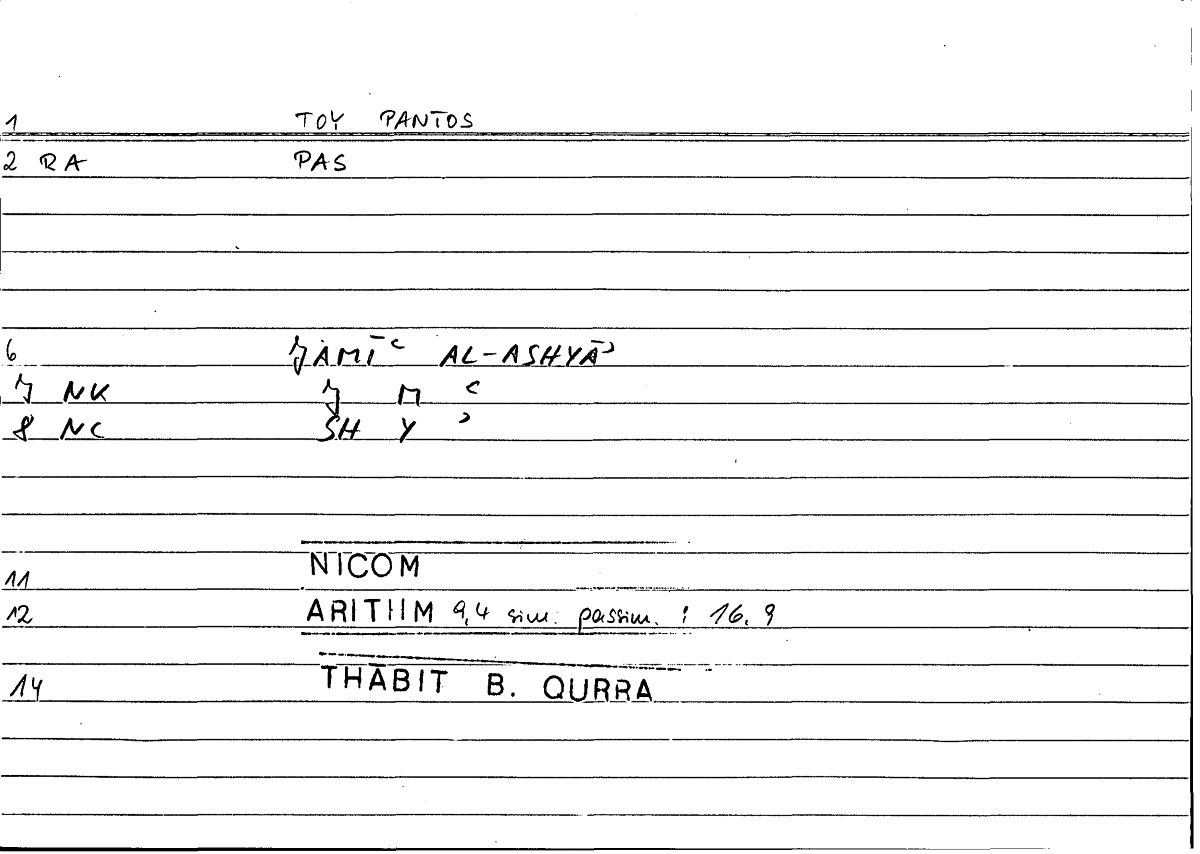 1 TOY PANTOS
2 RA PAS
6 JĀMĪʿ AL-ASHYĀʾ
7 NK J M ʿ
8 NC SH Y ʾ
11 NICOM
12 ARITHM 9,4 sim. passim. : 16, 9
14 THĀBIT B. QURRA